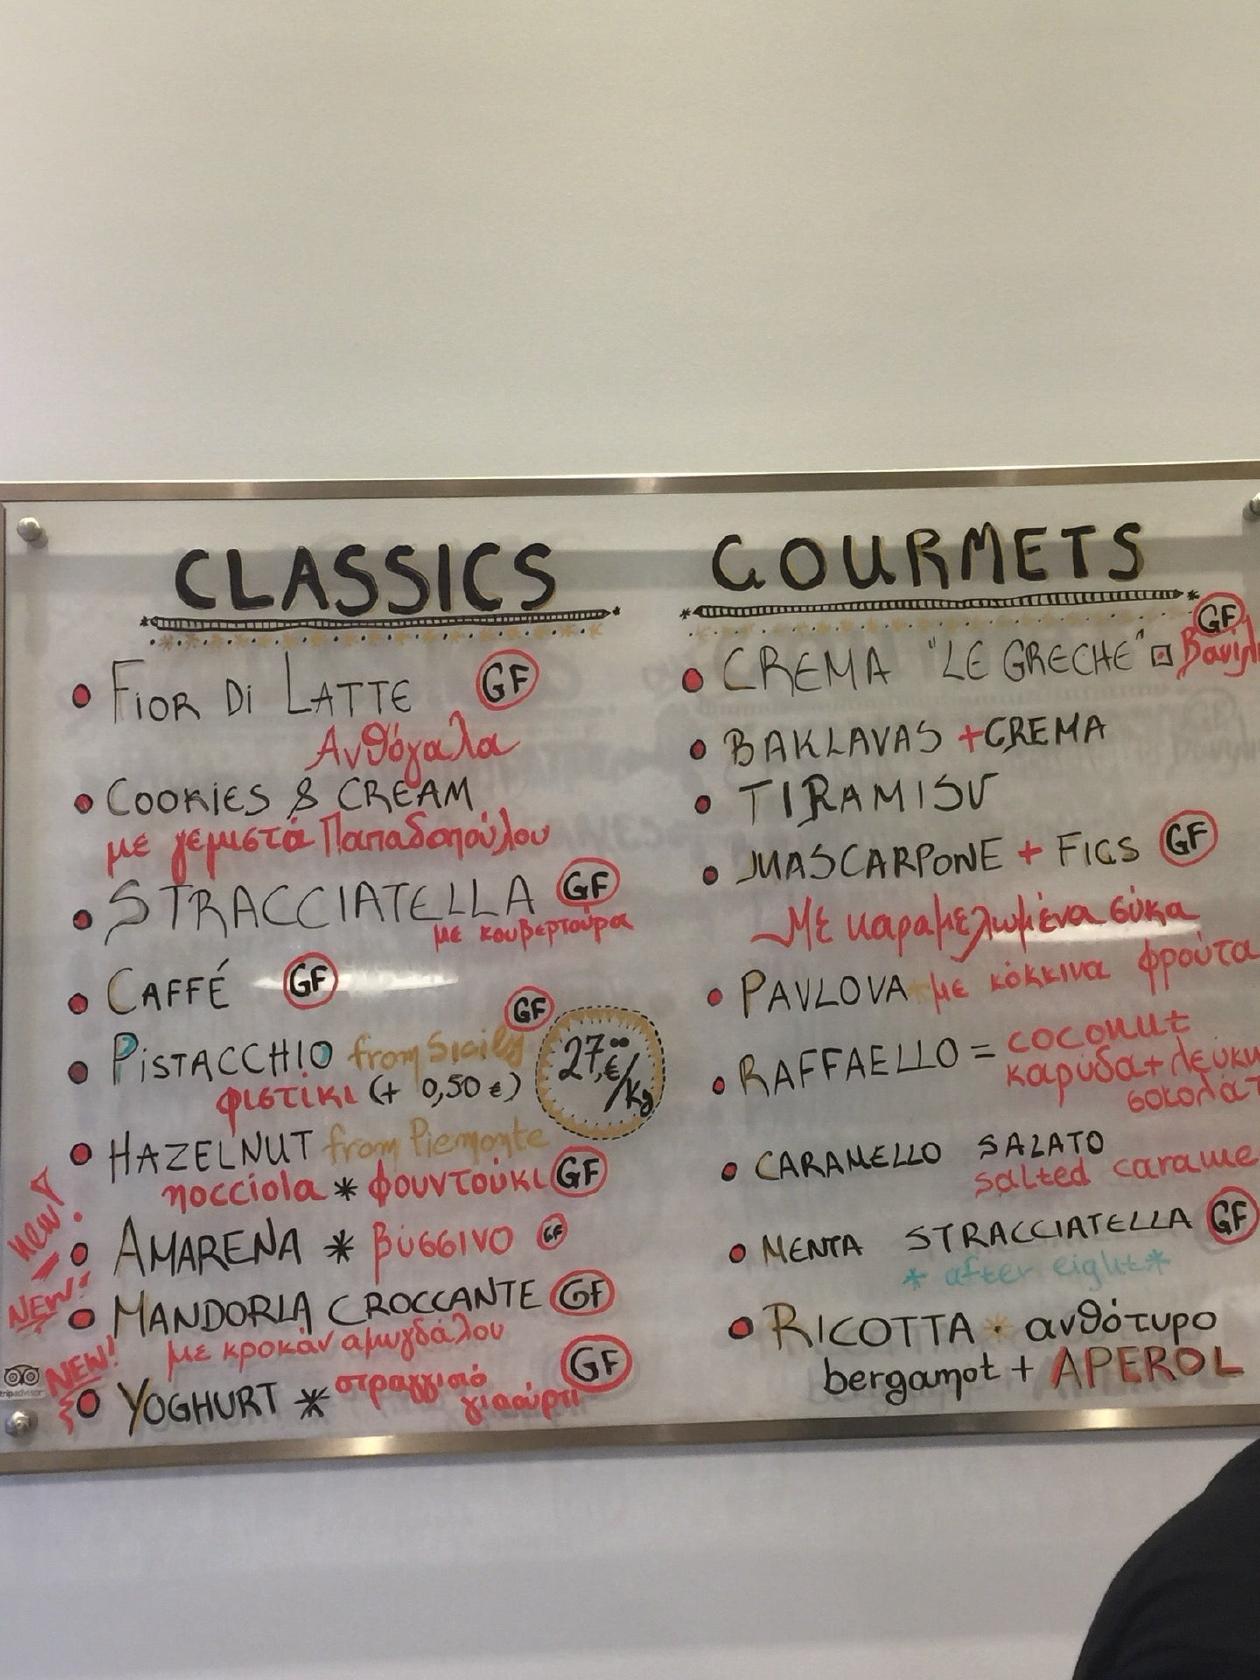 CLASSICS
FIOR DI LATTE GF
Ανθόγαλα
COOKIES & CREAM
με γεμιστά Παπαδοπούλου
STRACCIATELLA GF
με κουβερτούρα
CAFFÉ GF
PISTACCHIO from Sicily GF
φιστίκι (+ 0,50 €)
27,00 €/Kg
HAZELNUT from Piemonte
nocciola * φουντούκι GF
new!
AMARENA * βύσσινο GF
NEW!
MANDORLA CROCCANTE GF
με κροκάν αμυγδάλου
NEW!
YOGHURT * στραγγιστό GF
γιαούρτι
tripadvisor
GOURMETS
CREMA "LE GRECHE" GF
BAKLAVAS + CREMA
TIRAMISU
MASCARPONE + FIGS GF
Με καραμελωμένα σύκα
PAVLOVA με κόκκινα φρούτα
RAFFAELLO = coconut
καρύδα +
CARAMELLO SALATO
salted
MENTA STRACCIATELLA GF
* after eight *
RICOTTA * ανθότυρο
bergamot + APEROL